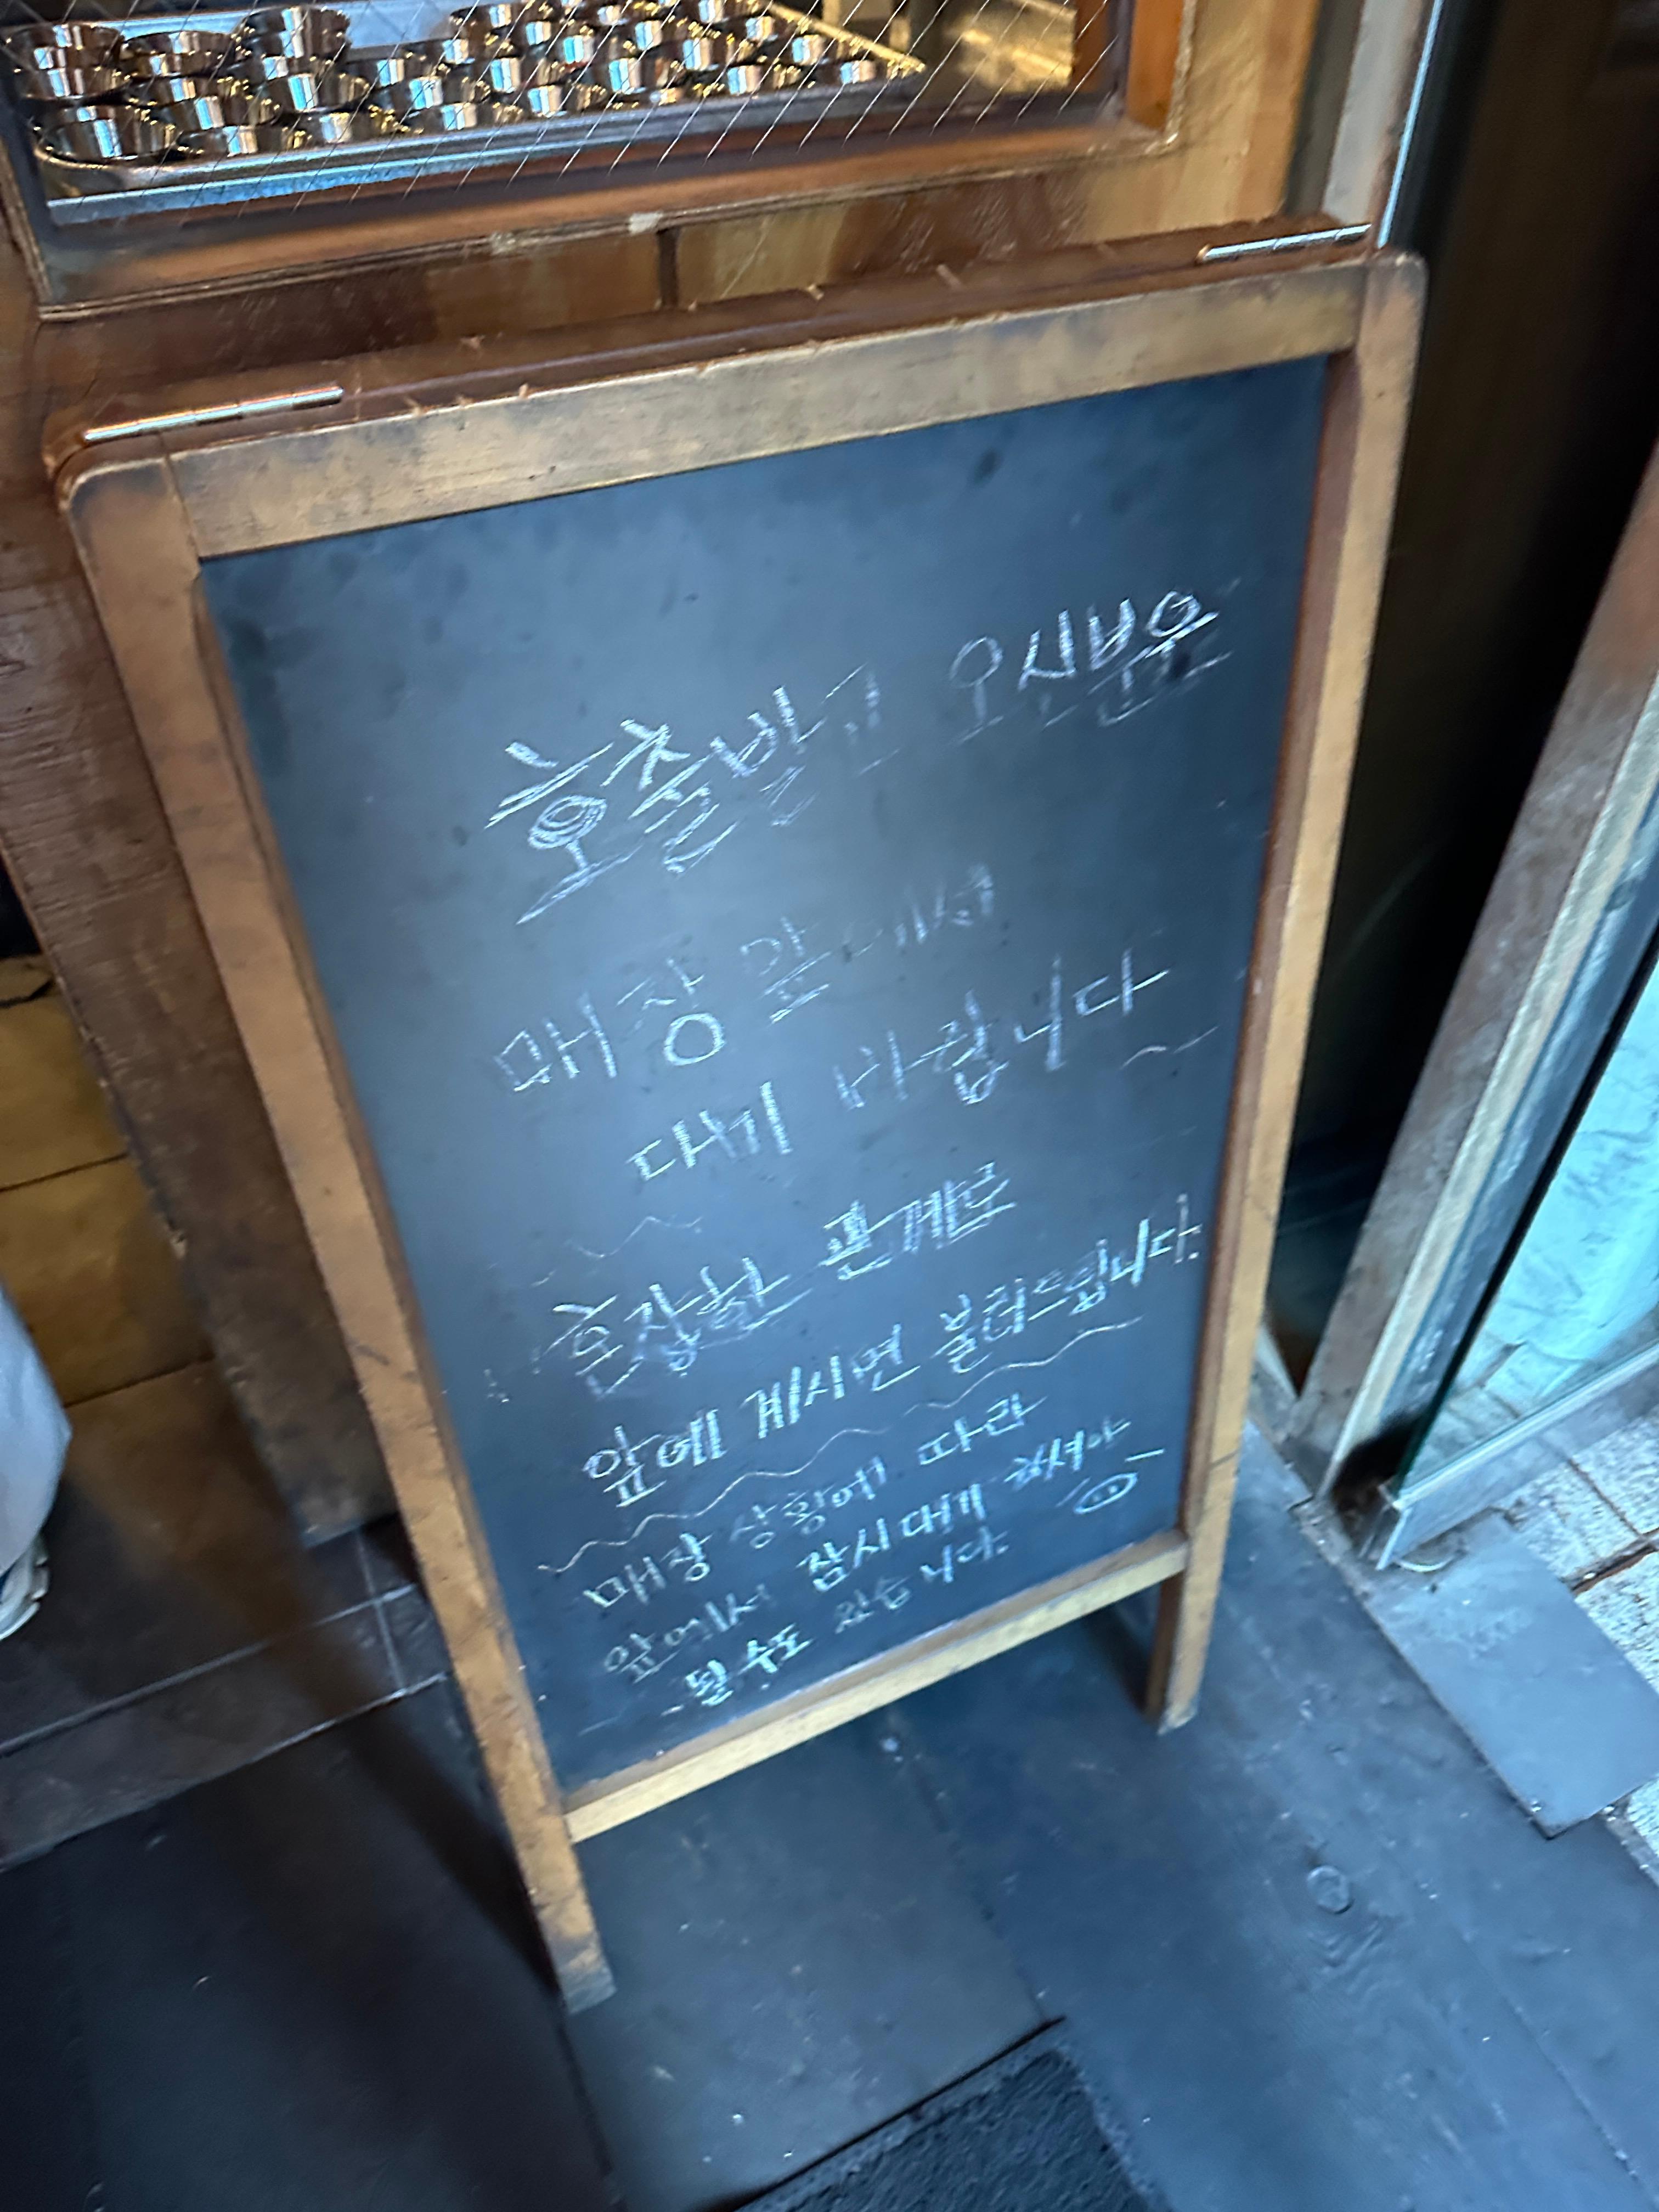 호출받고 오신분은
매장 앞에서
대기 바랍니다~
혼잡한 관계로
앞에 계시면 불러드립니다.
매장 상황에 따라
앞에서 잠시 대기 하셔야
될 수도 있습니다.